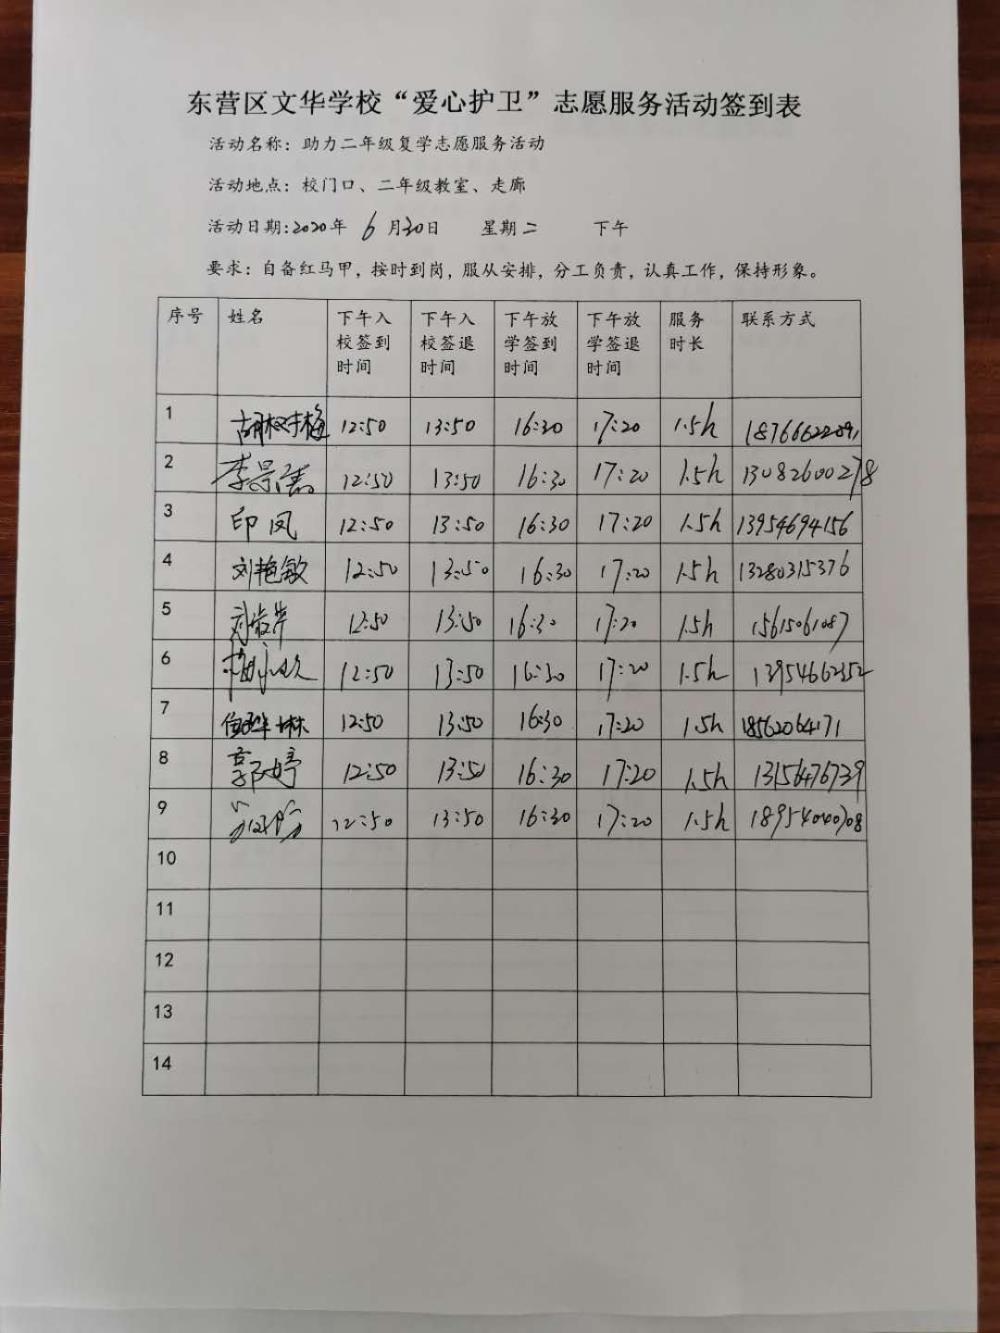 东营区文华学校“爱心护卫”志愿服务活动签到表
活动名称：助力二年级复学志愿服务活动
活动地点：校门口、二年级教室、走廊
活动日期:2020年 6 月30日 星期二 下午
要求：自备红马甲，按时到岗，服从安排，分工负责，认真工作，保持形象。
序号 姓名 下午入校签到时间 下午入校签退时间 下午放学签到时间 下午放学签退时间 服务时长 联系方式
1 胡树梅 12:50 13:50 16:30 17:20 1.5h
2 12:50 13:50 16:30 17:20 1.5h 13082600278
3 印凤 12:50 13:50 16:30 17:20 1.5h 13954694156
4 刘艳敏 12:50 13:50 16:30 17:20 1.5h 13280315376
5 12:50 13:50 16:30 17:20 1.5h 15615061087
6 12:50 13:50 16:30 17:20 1.5h 13954662352
7 12:50 13:50 16:30 17:20 1.5h 18562064171
8 郭婷 12:50 13:50 16:30 17:20 1.5h 13156476739
9 12:50 13:50 16:30 17:20 1.5h
10
11
12
13
14